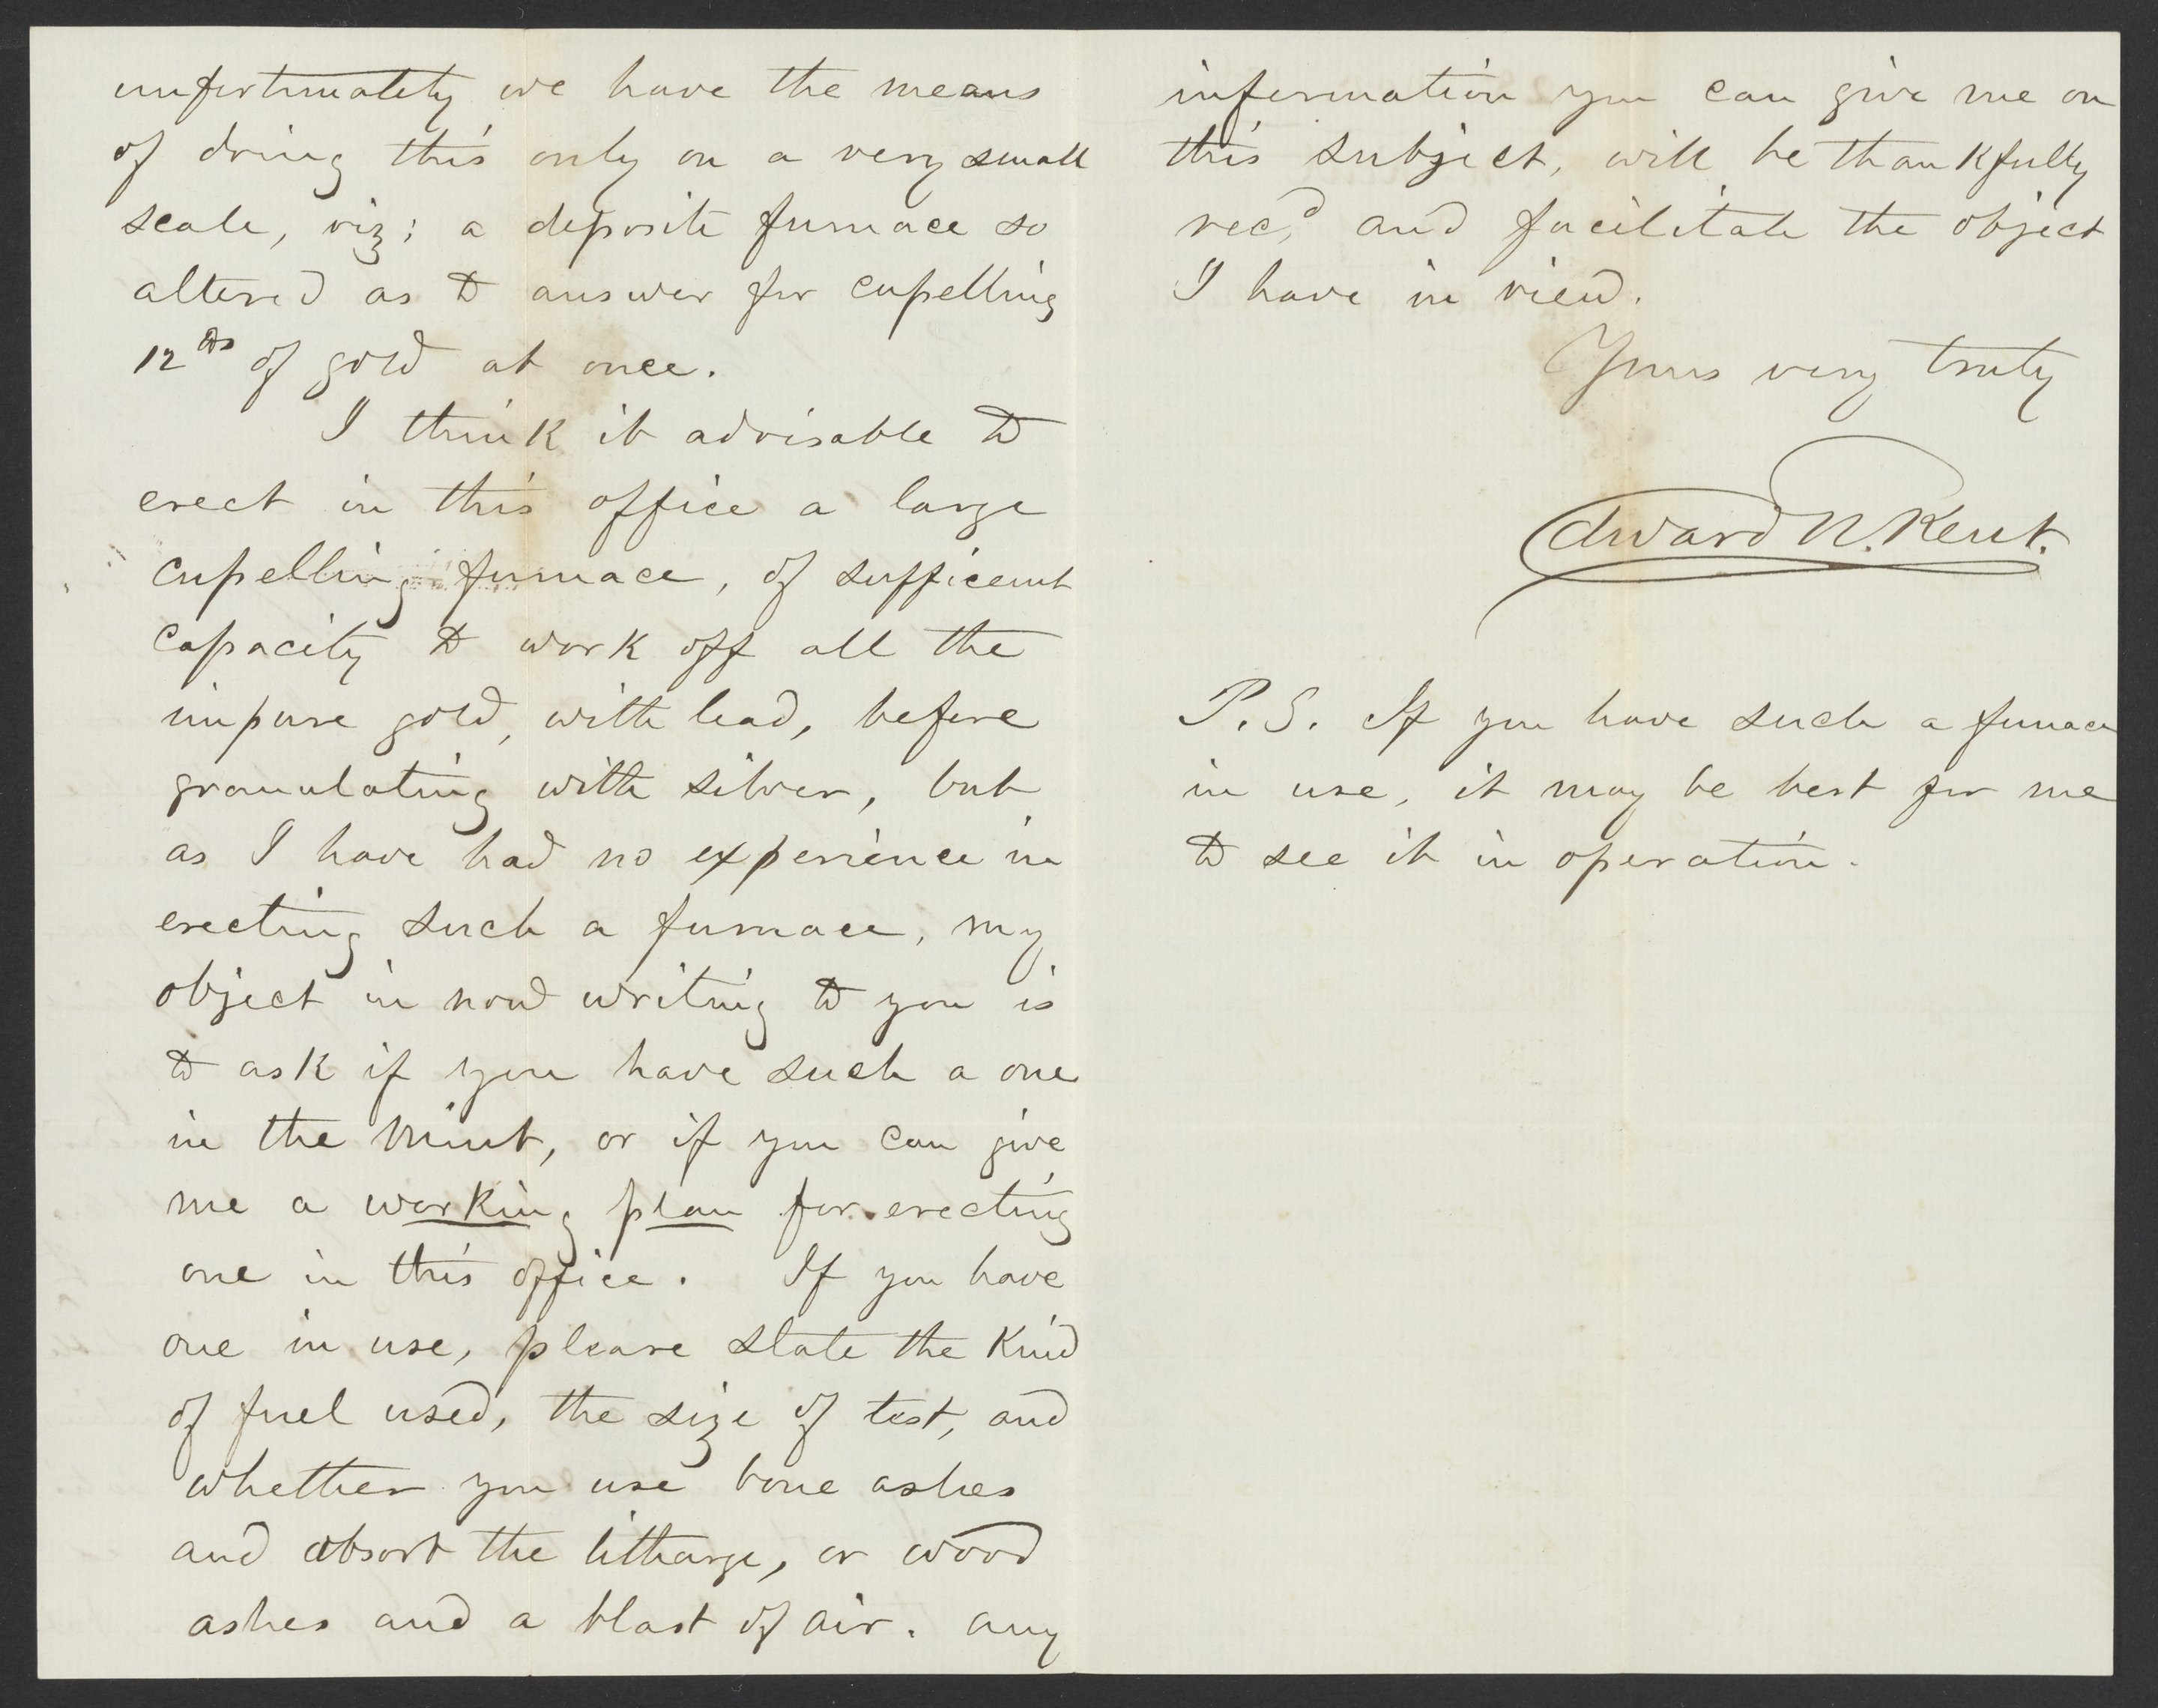 unfortunately we have the means
of doing this only on a very small
scale, viz; a deposite furnace so
altered as to answer for cupelling
12 lbs of gold at once.
I think it advisable to
erect in this office a large
cupelling furnace, of sufficeint
capacity to work off all the
impure gold, with lead, before
granulating with silver, but
as I have had no experience in
erecting such a furnace, my
object in now writing to you is
to ask if you have such a one
in the Mint, or if you can give
me a working plan for erecting
one in this office. If you have
one in use, please state the kind
of fuel used, the size of test, and
whether you use bone ashes
and absorb the litharge, or wood
ashes and a blast of air. Any
information you can give me on
this subject, will be thankfully
recd, and facilitate the object
I have in view.
Yours very truly
Edward N. Kent.
P.S. If you have such a funace
in use, it may be best for me
to see it in operation.